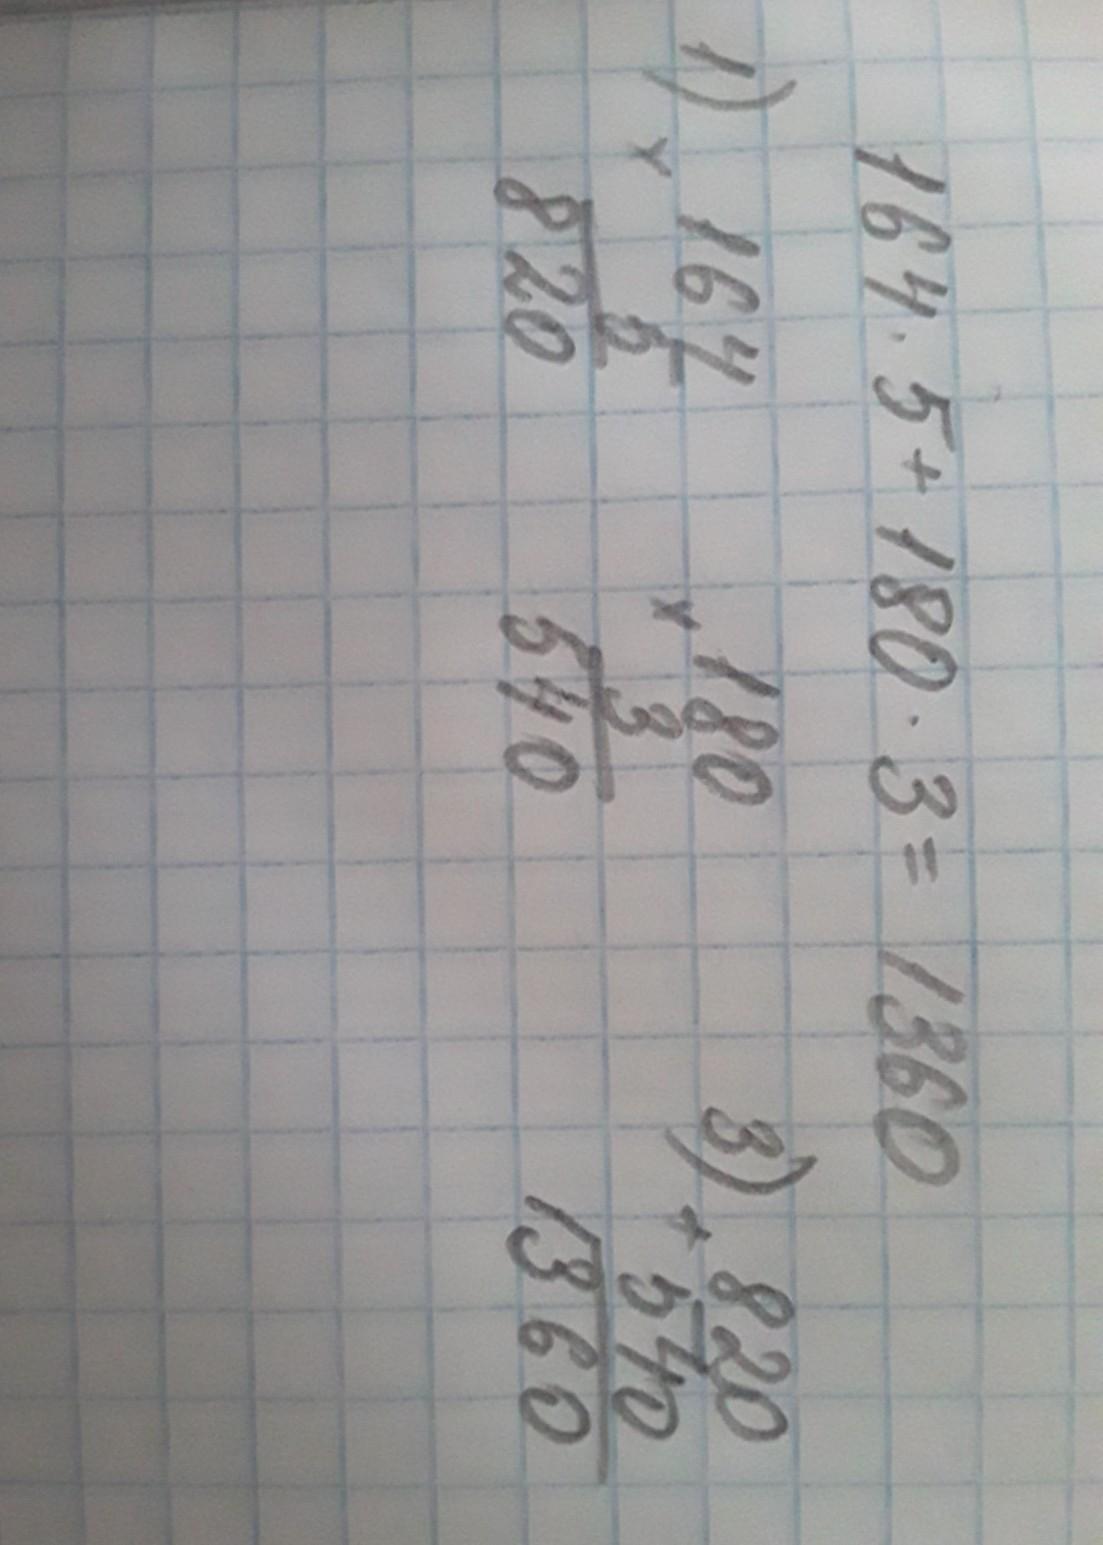 164 · 5 + 180 · 3 = 1360
1) × 164 × 180 3) + 820
5 3 540
820 540 1360